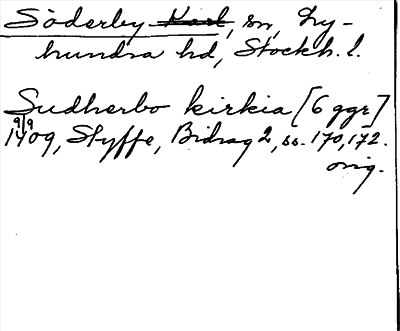 Söderby Karl, sn, Ly-
hundra hd, Stockh. l.
Sudherbo kirkia [6 ggr]
9/9
1409, Styffe, Bidrag 2, ss. 170, 172.
orig.